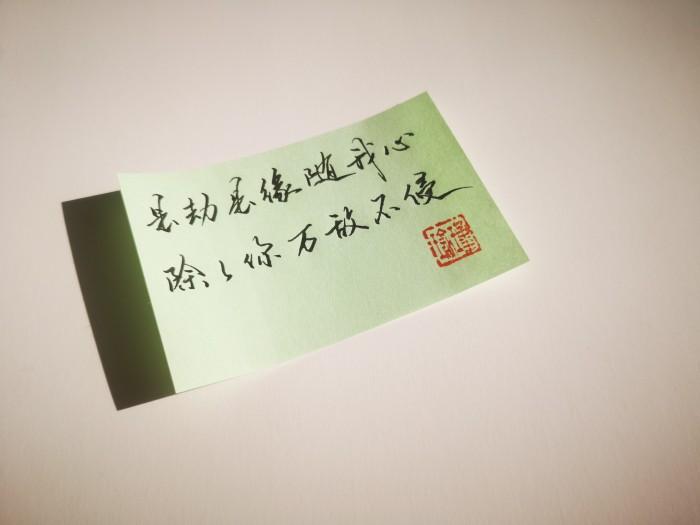 是劫是缘随我心
除了你万敌不侵